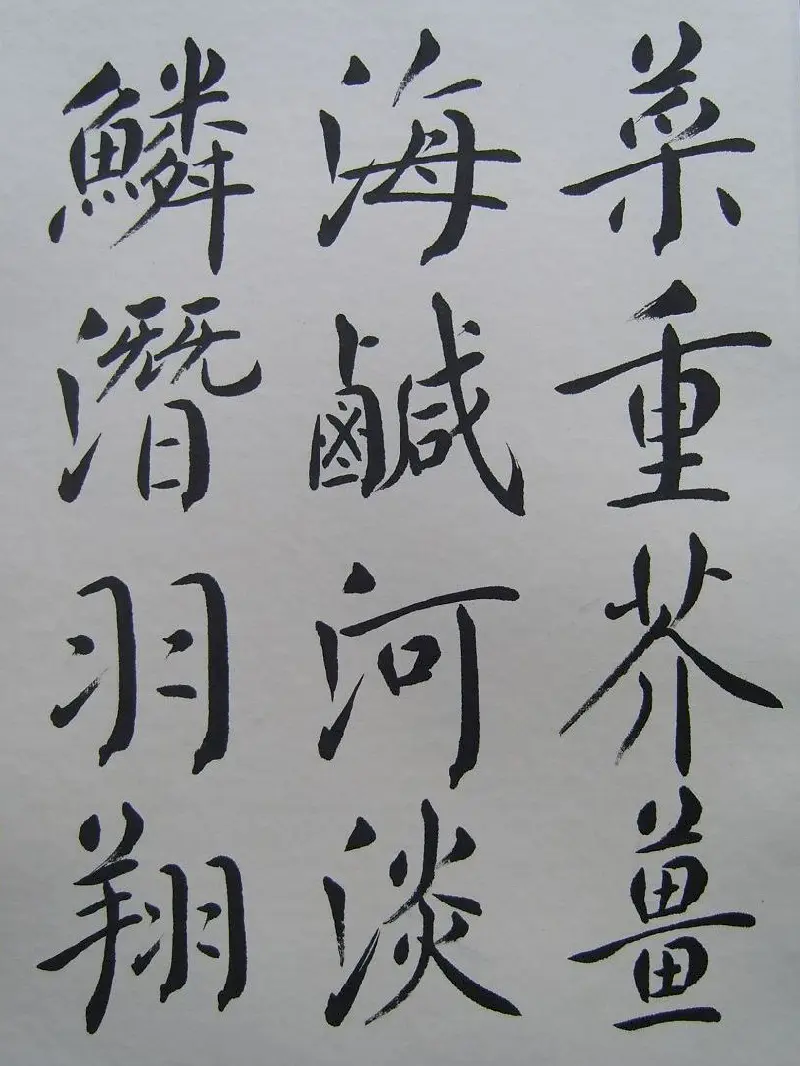 菜重芥薑
海鹹河淡
鱗潛羽翔